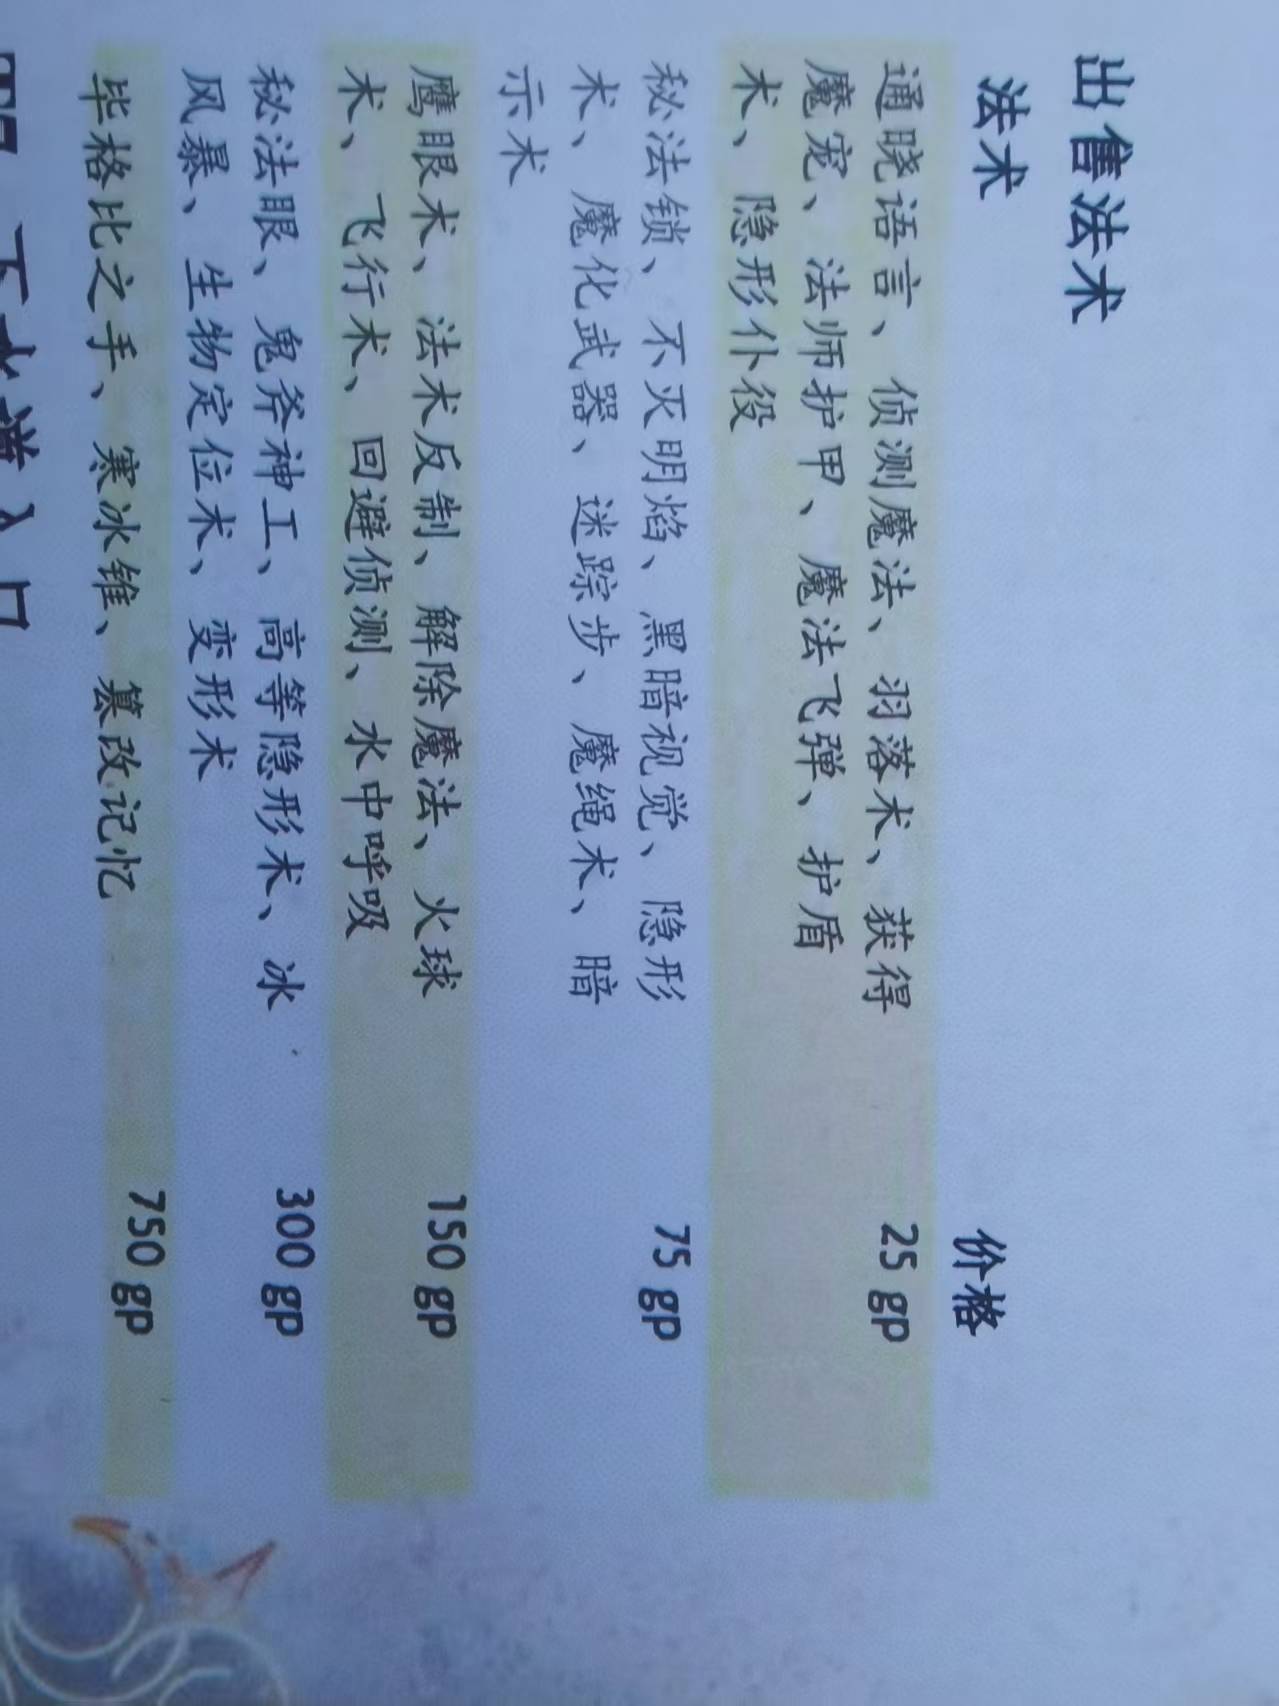 出售法术
法术 价格
通晓语言、侦测魔法、羽落术、获得 25 gp
魔宠、法师护甲、魔法飞弹、护盾
术、隐形仆役
秘法锁、不灭明焰、黑暗视觉、隐形 75 gp
术、魔化武器、迷踪步、魔绳术、暗
示术
鹰眼术、法术反制、解除魔法、火球 150 gp
术、飞行术、回避侦测、水中呼吸
秘法眼、鬼斧神工、高等隐形术、冰 300 gp
风暴、生物定位术、变形术
毕格比之手、寒冰锥、篡改记忆 750 gp
下水道入口